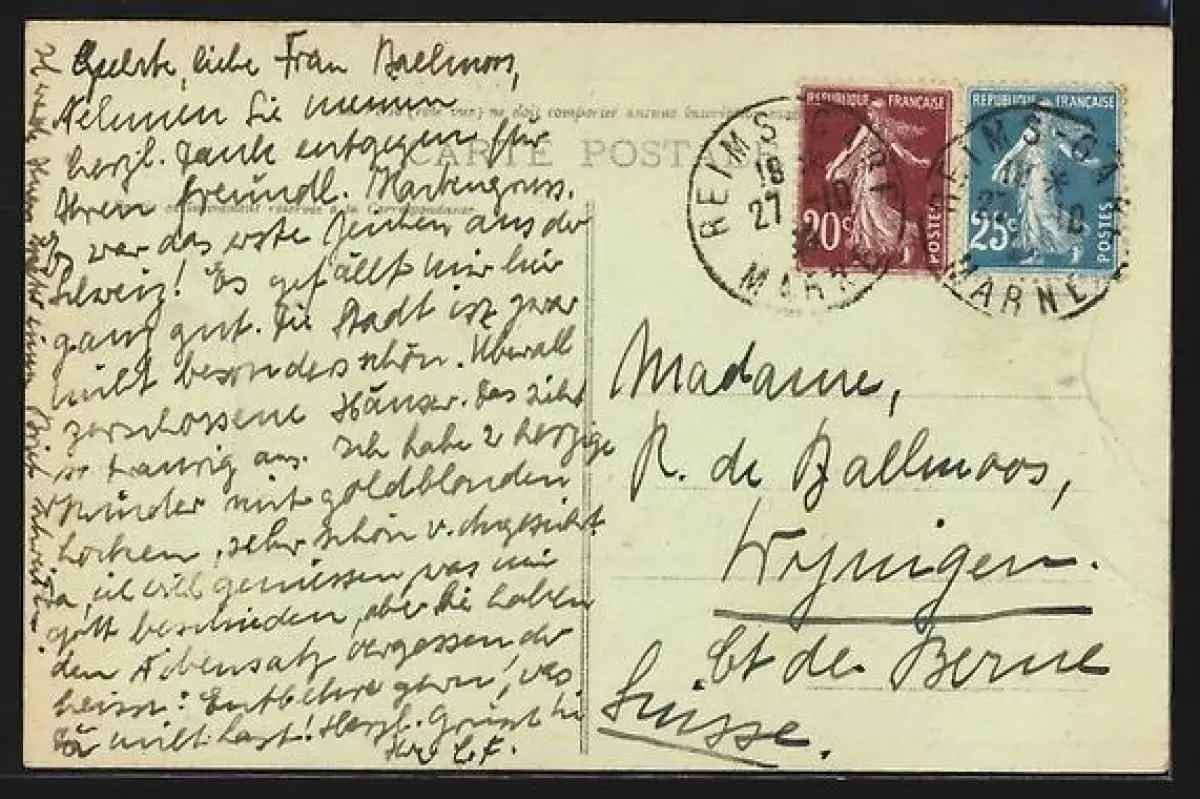 Geehrte, liebe Frau Ballmoos,
Nehmen Sie meinen
herzl. Dank entgegen für
Ihren freundl. Kartengruss.
Es war das erste Zeichen aus der
Schweiz! Es gefällt mir hier
ganz gut. Die Stadt ist zwar
nicht besonders schön. Überall
zerschossene Häuser. Das sieht
so traurig aus. Ich habe 2 herzige
Kinder mit goldblonden
Locken, sehr schön v. Angesicht.
Ja, ich will geniessen, was mir
Gott beschieden, aber Sie haben
den Nebensatz vergessen der
heisst: Entbehre gern, was
Du nicht hast! Herzl. Grüsst Sie
Ihre
Ich werde Ihnen später einen Brief schreiben.
ne doit comporter aucune
CARTE POSTALE
réservé à la Correspondance
REPUBLIQUE FRANÇAISE
20c
POSTES
REPUBLIQUE FRANÇAISE
25c
POSTES
REIMS-GARE
18
27 -10
MARNE
REIMS-GARE
18 *
27 10
MARNE
Madame,
R. de Ballmoos,
Wynigen.
Ct de Berne
Suisse.